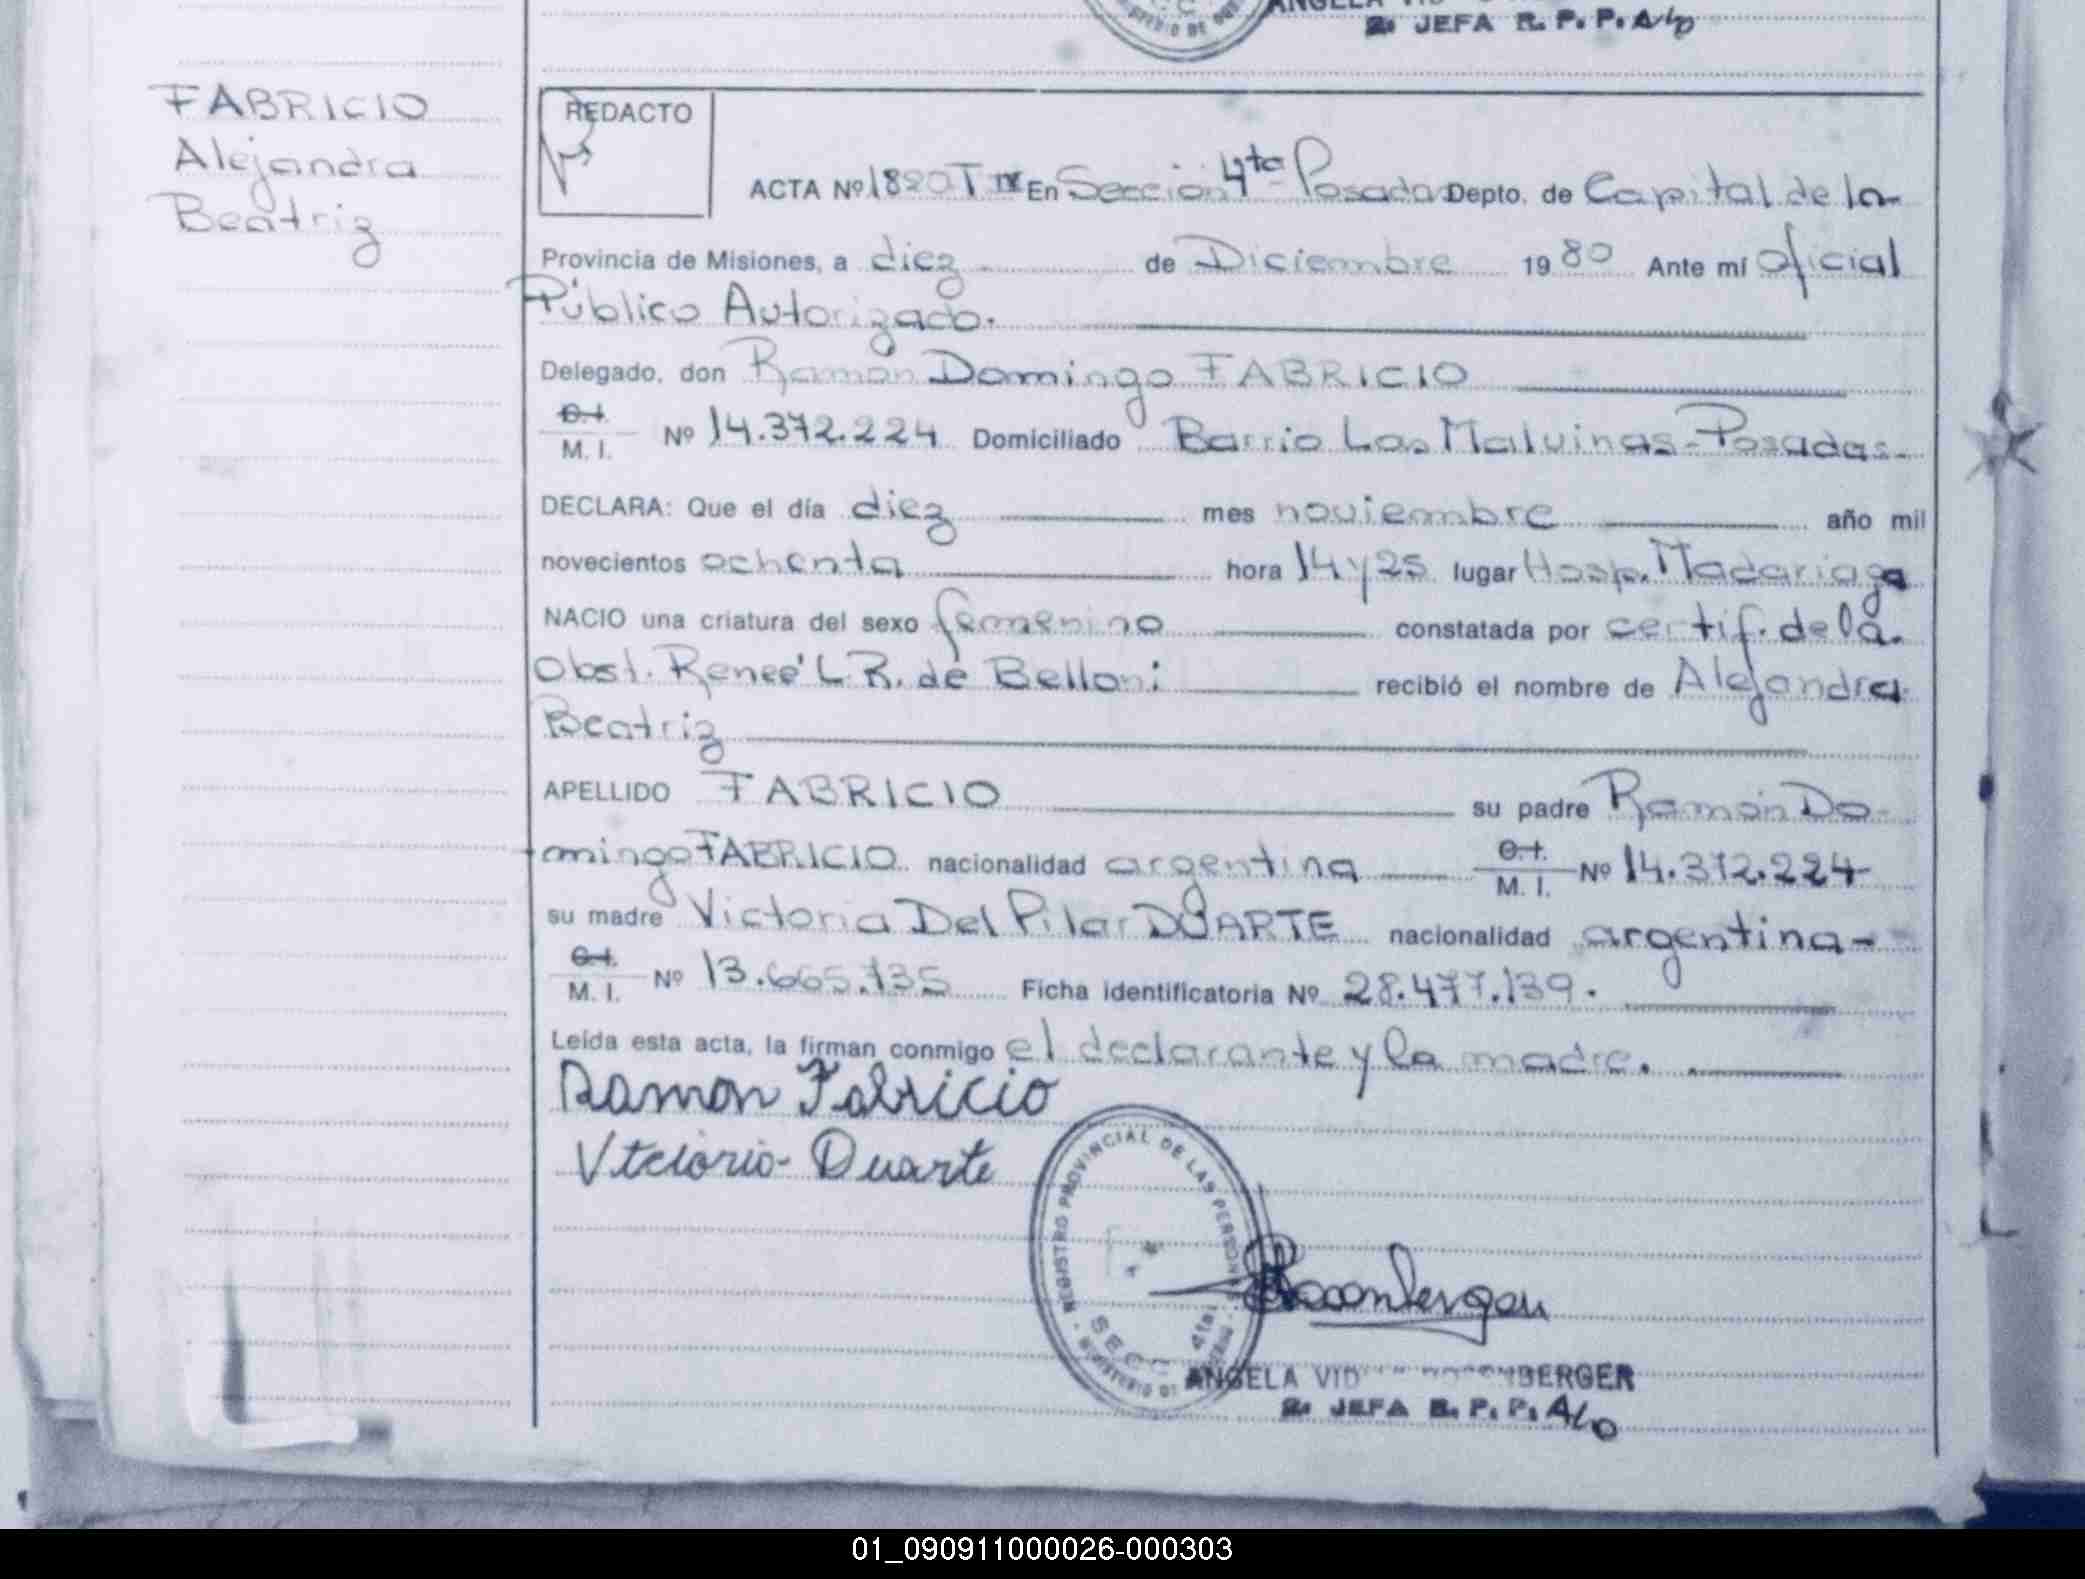 2. JEFA R. P. P. A/o
FABRICIO
Alejandra
Beatriz
REDACTO
ACTA Nº 1820 T IV En Sección 4ta Posadas Depto. de Capital de la
Provincia de Misiones, a diez de Diciembre 1980 Ante mí oficial
Público Autorizado.
Delegado, don Ramón Domingo FABRICIO
C. I.
M. I. Nº 14.372.224 Domiciliado Barrio Las Malvinas - Posadas.
DECLARA: Que el día diez mes noviembre año mil
novecientos ochenta hora 14 y 25 lugar Hosp. Madariaga
NACIO una criatura del sexo femenino constatada por certif. de la.
Obst. Reneé L. R. de Belloni recibió el nombre de Alejandra
Beatriz
APELLIDO FABRICIO su padre Ramón Do-
mingo FABRICIO nacionalidad argentina C. I.
M. I. Nº 14.372.224
su madre Victoria Del Pilar DUARTE nacionalidad argentina-
C. I.
M. I. Nº 13.665.735 Ficha identificatoria Nº 28.477.139.
Leída esta acta, la firman conmigo el declarante y la madre.
Ramon Fabricio
Vtciorio- Duarte
REGISTRO PROVINCIAL DE LAS PERSONAS
SECC. 4ta
ANGELA
BERGER
2. JEFA R. P. P. A/o
01_090911000026-000303